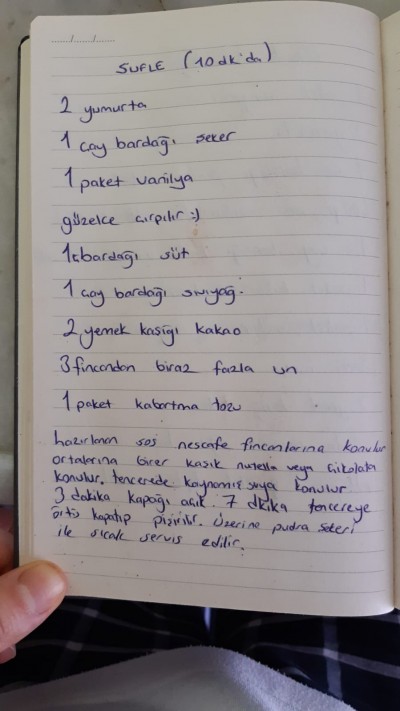 ...../...../.....
SUFLE (10 dk'da)
2 yumurta
1 çay bardağı şeker
1 paket vanilya
güzelce çırpılır :)
1 ç bardağı süt
1 çay bardağı sıvıyağ.
2 yemek kaşığı kakao
3 fincandan biraz fazla un
1 paket kabartma tozu
hazırlanan sos nescafe fincanlarına konulur
ortalarına birer kaşık nutella veya çikolata
konulur. tencerede kaynamış suya konulur
3 dakika kapağı açık. 7 dkika tencereye
örtü kapatıp pişirilir. Üzerine pudra şekeri
ile sıcak servis edilir.